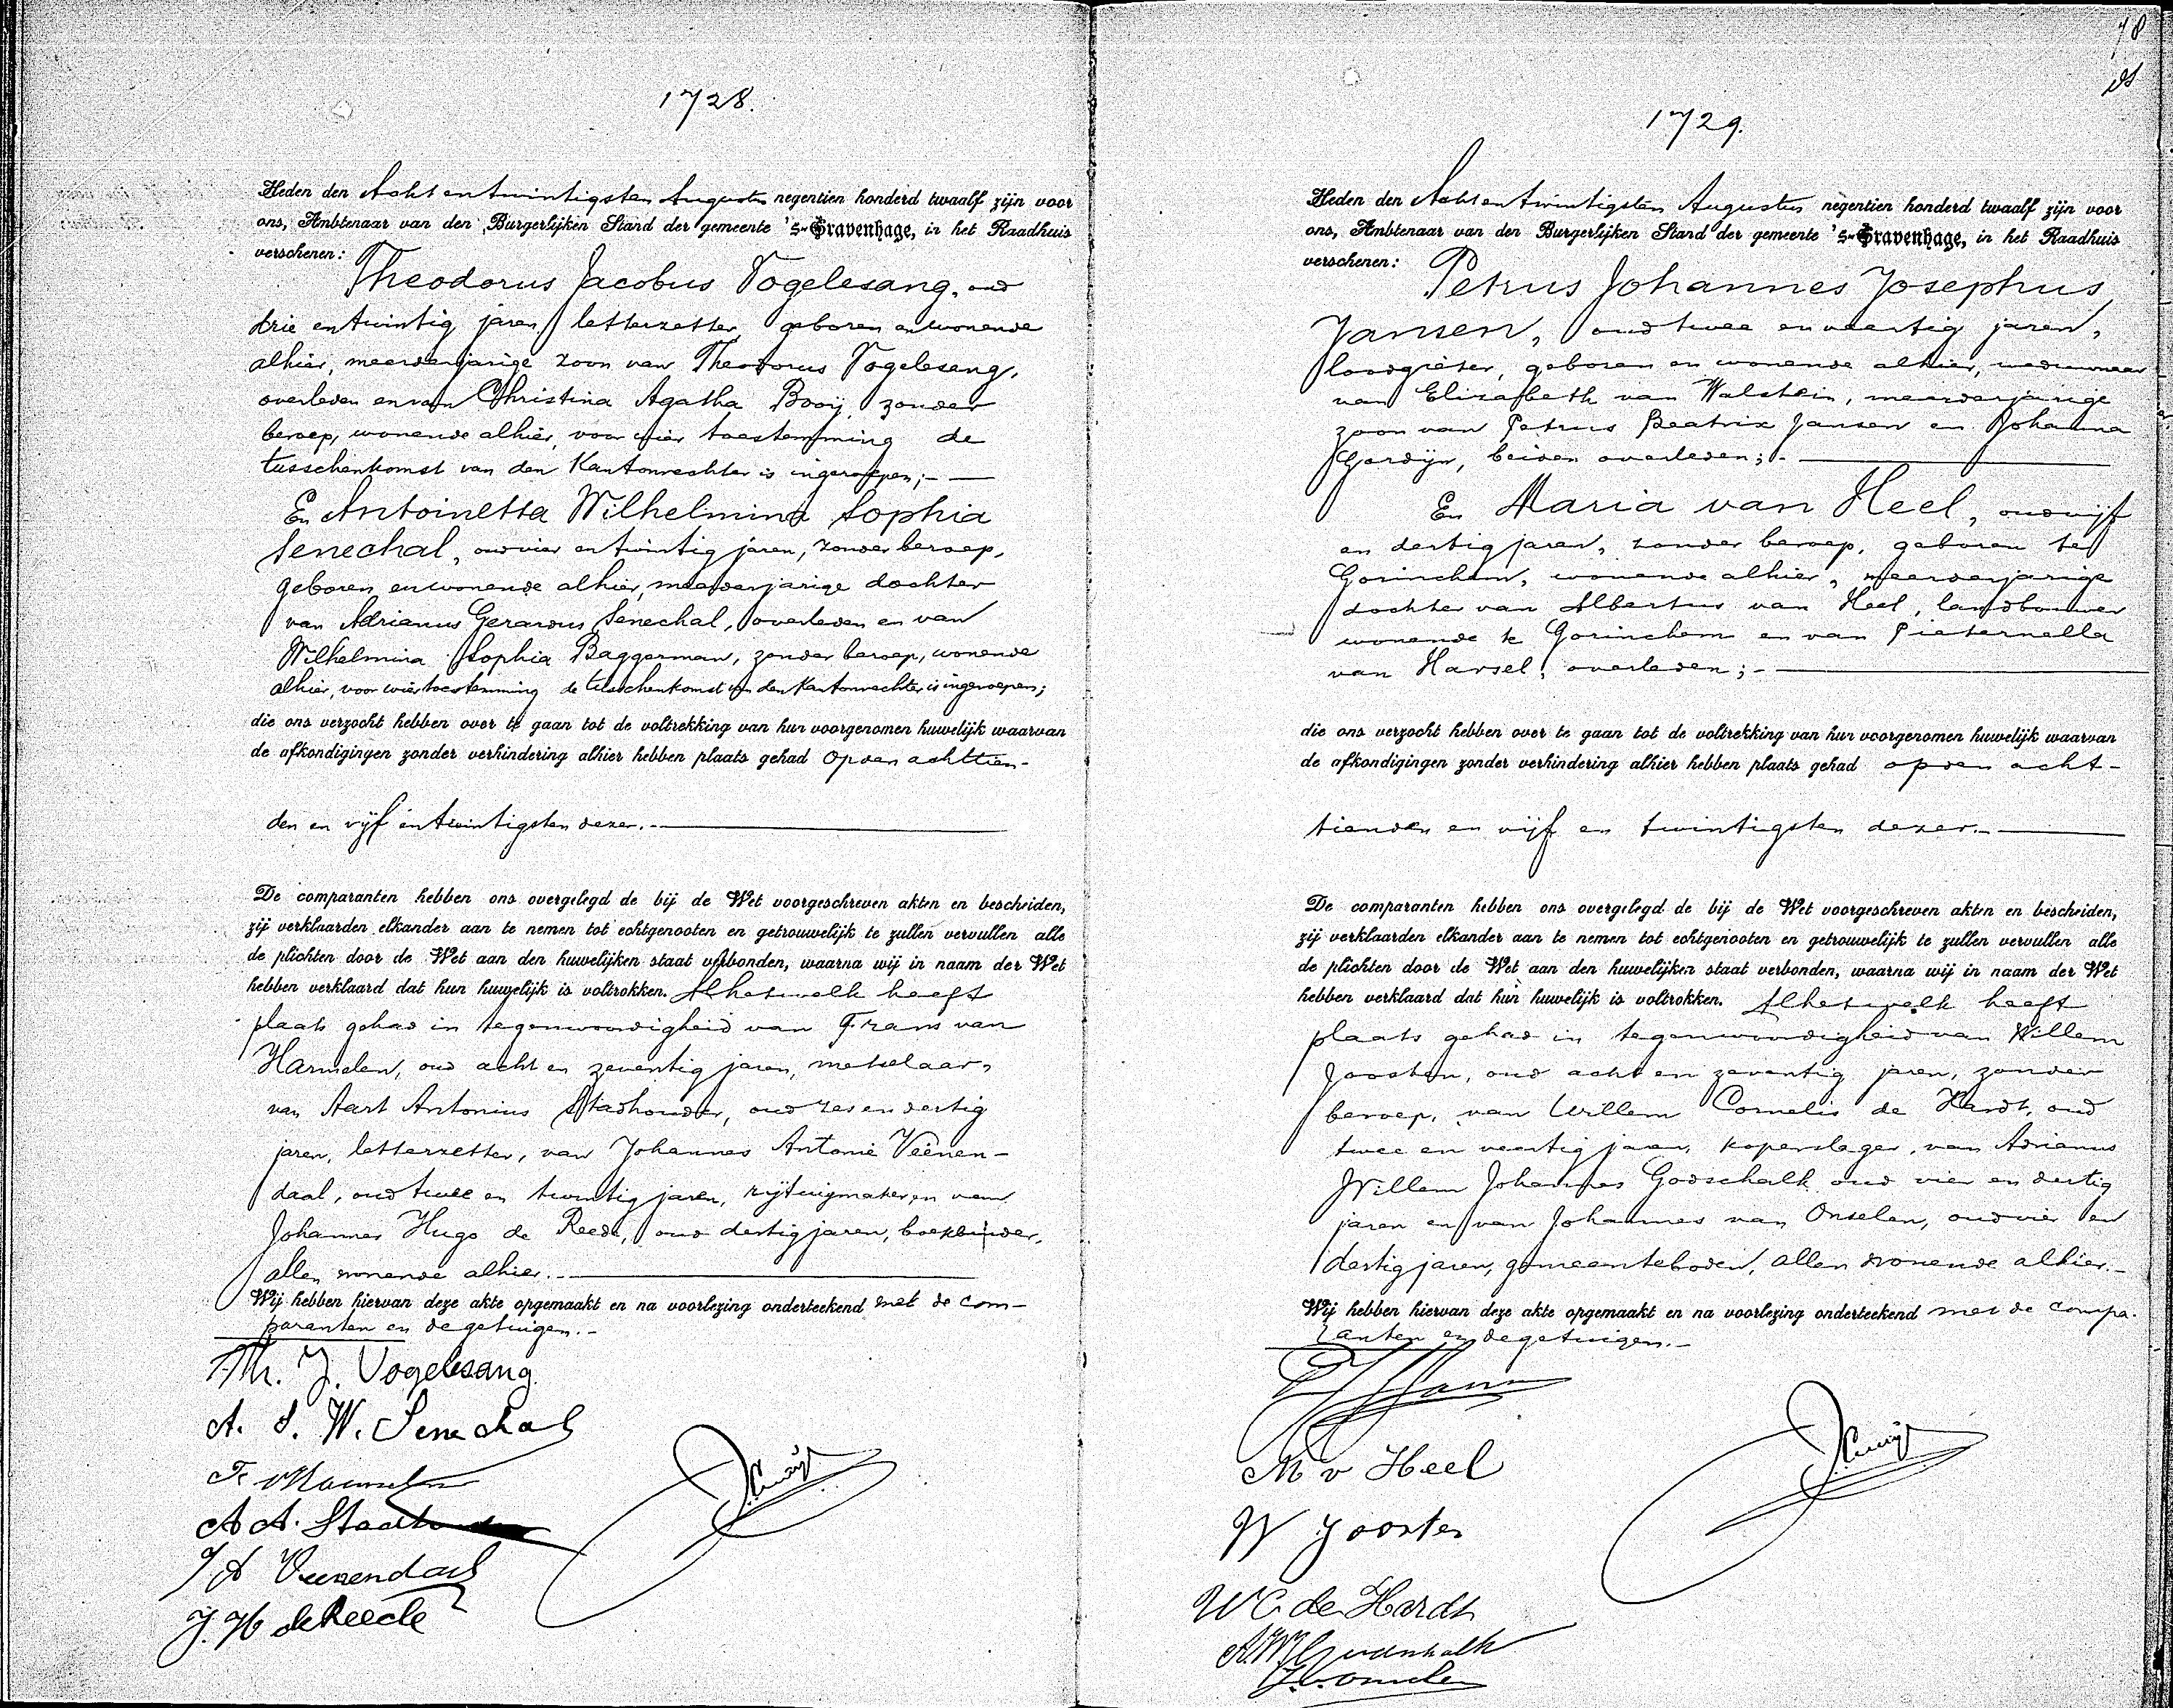 1728.
Heden den Acht en twintigsten Augustus negentien honderd twaalf zijn voor
ons, Ambtenaar van den Burgerlijken Stand der gemeente 's-Gravenhage, in het Raadhuis
verschenen:
Theodorus Jacobus Vogelesang, oud
drie en twintig jaren, letterzetter, geboren en wonende
alhier, meerderjarige zoon van Theodorus Vogelesang,
overleden en van Christina Agatha Booij, zonder
beroep, wonende alhier, voor wier toestemming de
tusschenkomst van den Kantonrechter is ingeroepen;-
En Antoinetta Wilhelmina Sophia
Senechal, oud vier en twintig jaren, zonder beroep,
geboren en wonende alhier, meerderjarige dochter
van Adrianus Gerardus Senechal, overleden en van
Wilhelmina Sophia Baggerman, zonder beroep, wonende
alhier, voor wier toestemming de tusschenkomst van den Kantonrechter is ingeroepen;
die ons verzocht hebben over te gaan tot de voltrekking van hun voorgenomen huwelijk waarvan
de afkondigingen zonder verhindering alhier hebben plaats gehad op den achttien-
den en vijf en twintigsten dezer.-
De comparanten hebben ons overgelegd de bij de Wet voorgeschreven akten en bescheiden,
zij verklaarden elkander aan te nemen tot echtgenooten en getrouwelijk te zullen vervullen alle
de plichten door de Wet aan den huwelijken staat verbonden, waarna wij in naam der Wet
hebben verklaard dat hun huwelijk is voltrokken. Alhetwelk heeft
plaats gehad in tegenwoordigheid van Frans van
Harmelen, oud acht en zeventig jaren, metselaar,
van Aart Antonius Stadhouder, oud zes en dertig
jaren, letterzetter, van Johannes Antonie Veenen-
daal, oud twee en twintig jaren, rijtuigmaker, en van
Johannes Hugo de Reede, oud dertig jaren, boekbinder,
allen wonende alhier.-
Wij hebben hiervan deze akte opgemaakt en na voorlezing onderteekend met de com-
paranten en de getuigen.-
Th. J. Vogelesang
A. S. W. Senechal
F. v Harmelen
A A. Stadhouder
J A Veenendaal
J. H de Reede
78
1729.
Heden den Acht en twintigsten Augustus negentien honderd twaalf zijn voor
ons, Ambtenaar van den Burgerlijken Stand der gemeente 's-Gravenhage, in het Raadhuis
verschenen:
Petrus Johannes Josephus
Jansen, oud twee en veertig jaren,
loodgieter, geboren en wonende alhier, weduwnaar
van Elizabeth van Walstein, meerderjarige
zoon van Petrus Beatrix Jansen en Johanna
Gordijn, beiden overleden;-
En Maria van Heel, oud vijf
en dertig jaren, zonder beroep, geboren te
Gorinchem, wonende alhier, meerderjarige
dochter van Albertus van Heel, landbouwer
wonende te Gorinchem en van Pieternella
van Harsel, overleden;-
die ons verzocht hebben over te gaan tot de voltrekking van hun voorgenomen huwelijk waarvan
de afkondigingen zonder verhindering alhier hebben plaats gehad op den acht-
tienden en vijf en twintigsten dezer.-
De comparanten hebben ons overgelegd de bij de Wet voorgeschreven akten en bescheiden,
zij verklaarden elkander aan te nemen tot echtgenooten en getrouwelijk te zullen vervullen alle
de plichten door de Wet aan den huwelijken staat verbonden, waarna wij in naam der Wet
hebben verklaard dat hun huwelijk is voltrokken. Alhetwelk heeft
plaats gehad in tegenwoordigheid van Willem
Joosten, oud acht en zeventig jaren, zonder
beroep, van Willem Cornelis de Hardt, oud
twee en veertig jaren, koperslager, van Adrianus
Willem Johannes Godschalk oud vier en dertig
jaren en van Johannes van Onselen, oud vier en
dertig jaren, gemeenteboden, allen wonende alhier.-
Wij hebben hiervan deze akte opgemaakt en na voorlezing onderteekend met de compa-
ranten en de getuigen.-
M v Heel
W Joosten
W C de Hardt